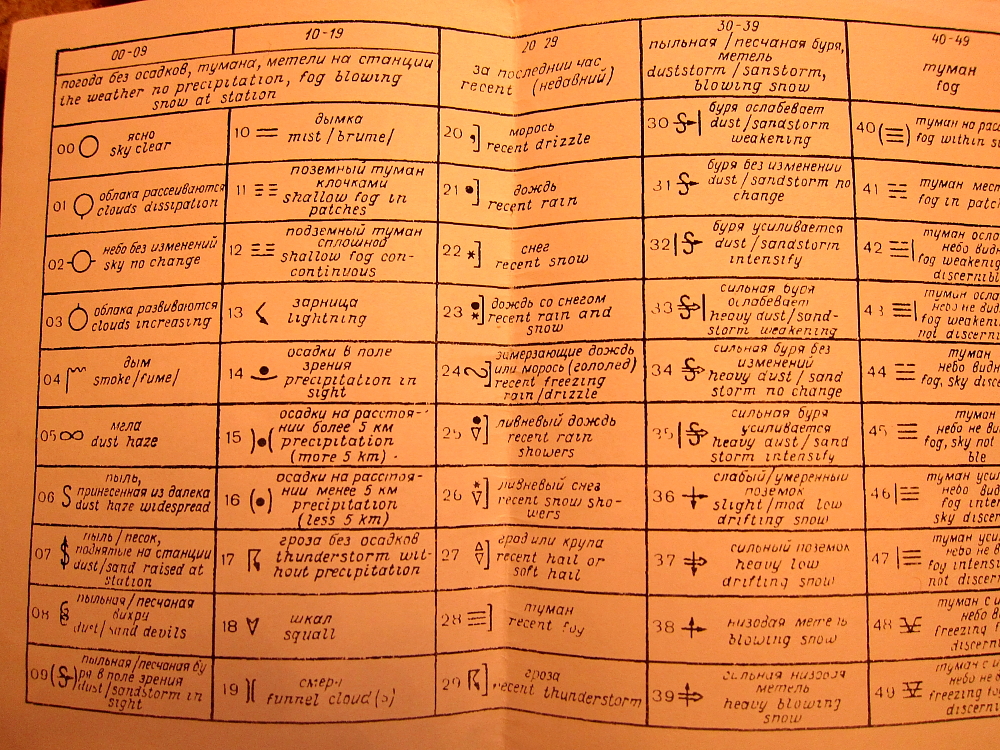 00-09
10-19
погода без осадков, тумана, метели на станции
the weather no precipitation, fog blowing
snow at station
20 29
за последний час
recent (недавний)
30-39
пыльная/песчаная буря,
метель
duststorm/sanstorm,
blowing snow
40-49
туман
fog
00 ясно
sky clear
01 облака рассеиваются
clouds dissipation
02 небо без изменений
sky no change
03 облака развиваются
clouds increasing
04 дым
smoke/fume/
05 мгла
dust haze
06 пыль,
принесенная из далека
dust haze widespread
07 пыль/песок,
поднятые на станции
dust/sand raised at
station
08 пыльная/песчаная
вихри
dust/sand devils
09 пыльная/песчаная бу
ря в поле зрения
dust/sandstorm in
sight
10 дымка
mist/brume/
11 поземный туман
клочками
shallow fog in
patches
12 подземный туман
сплошной
shallow fog con-
continuous
13 зарница
lightning
14 осадки в поле
зрения
precipitation in
sight
15 осадки на расстоя-
нии более 5 км
precipitation
(more 5 km)
16 осадки на расстоя-
нии менее 5 км
precipitation
(less 5 km)
17 гроза без осадков
thunderstorm wit-
hout precipitation
18 шквал
squall
19 смерч
funnel cloud(s)
20 морось
recent drizzle
21 дождь
recent rain
22 снег
recent snow
23 дождь со снегом
recent rain and
snow
24 замерзающие дождь
или морось (гололед)
recent freezing
rain/drizzle
25 ливневый дождь
recent rain
showers
26 ливневый снег
recent snow sho-
wers
27 град или крупа
recent hail or
soft hail
28 туман
recent fog
29 гроза
recent thunderstorm
30 буря ослабевает
dust/sandstorm
weakening
31 буря без изменении
dust/sandstorm no
change
32 буря усиливается
dust/sandstorm
intensify
33 сильная буря
ослабевает
heavy dust/sand-
storm weakening
34 сильная буря без
изменений
heavy dust/sand
storm no change
35 сильная буря
усиливается
heavy dust/sand
storm intensify
36 слабый/умеренный
поземок
slight/mod low
drifting snow
37 сильный поземок
heavy low
drifting snow
38 низовая метель
blowing snow
39 сильная низовая
метель
heavy blowing
snow
40 туман на рас
fog within s
41 туман мест
fog in patch
42 туман осла
небо видн
fog weakenig
discernibl
43 туман осла
небо не ви
fog weakeni
not discern
44 туман
небо видн
fog, sky disc
45 туман
небо не ви
fog, sky not
ble
46 туман уси
небо вид
fog inten
sky discer
47 туман уси
небо не в
fog intensi
not discern
48 туман с и
небо в
freezing f
discerni
49 туман с и
небо не в
freezing fo
discerni